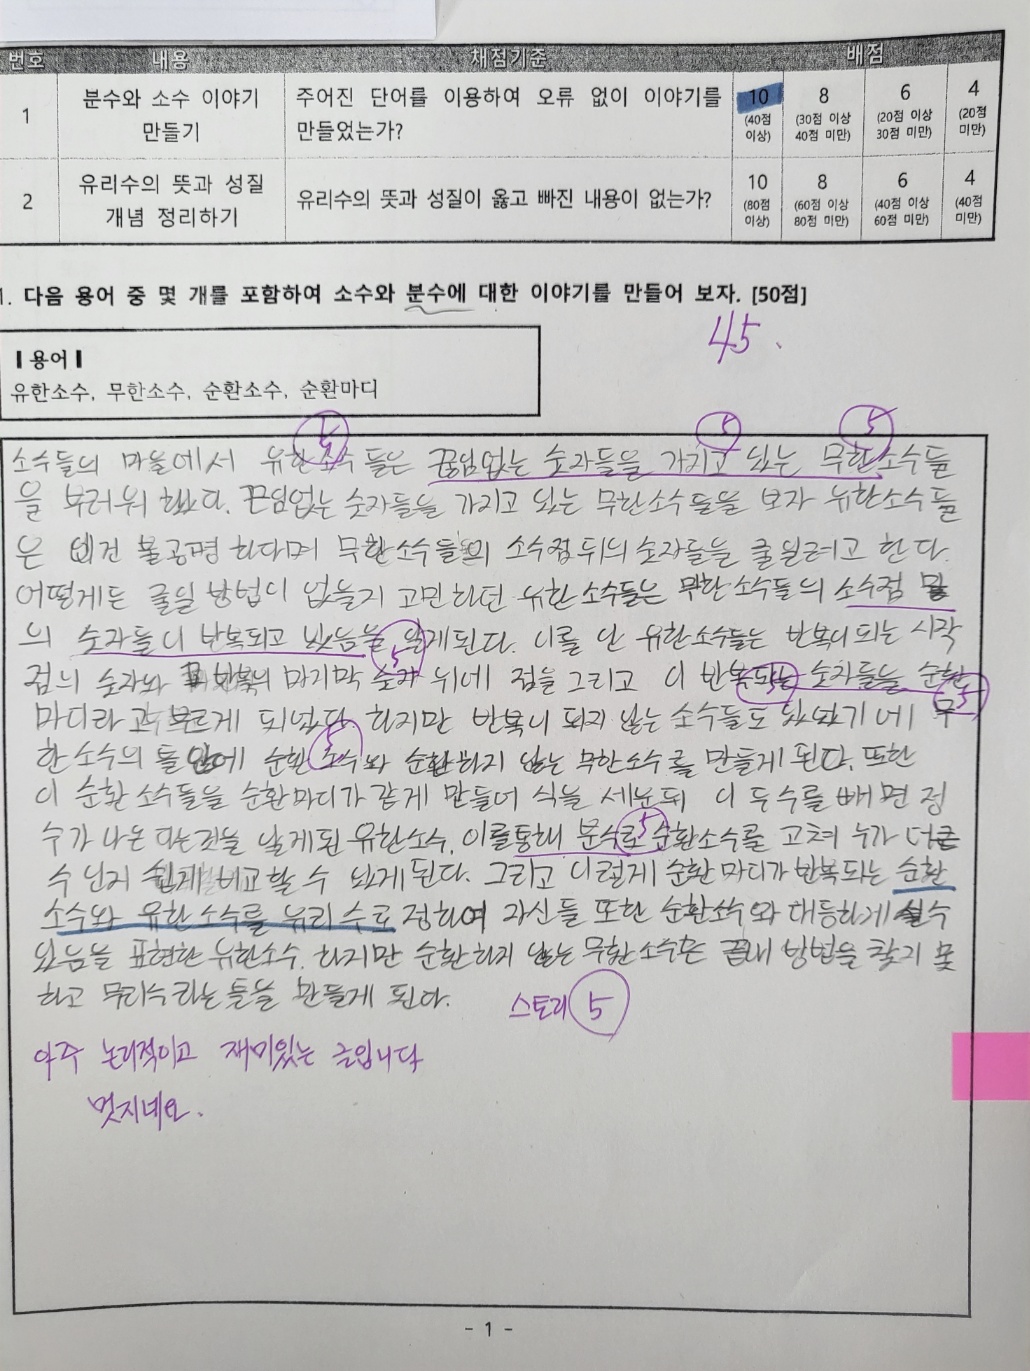 번호 내용 채점기준 배점
1 분수와 소수 이야기 만들기 주어진 단어를 이용하여 오류 없이 이야기를 만들었는가? 10 (40점 이상) 8 (30점 이상 40점 미만) 6 (20점 이상 30점 미만) 4 (20점 미만)
2 유리수의 뜻과 성질 개념 정리하기 유리수의 뜻과 성질이 옳고 빠진 내용이 없는가? 10 (80점 이상) 8 (60점 이상 80점 미만) 6 (40점 이상 60점 미만) 4 (40점 미만)
1. 다음 용어 중 몇 개를 포함하여 소수와 분수에 대한 이야기를 만들어 보자. [50점]
45.
┃용어┃
유한소수, 무한소수, 순환소수, 순환마디
5 5 5
소수들의 마을에서 유한소수들은 끊임없는 숫자들을 가지고 있는 무한소수들
을 부러워 했다. 끈임없는 숫자들을 가지고 있는 무한소수들을 보자 유한소수들
은 이건 불공평 하다며 무한소수들의 소수점 뒤의 숫자들을 줄일려고 한다.
어떻게든 줄일 방법이 없을지 고민하던 유한소수들은 무한소수들의 소수점
의 숫자들이 반복되고 있음을 알게된다. 이를 안 유한소수들는 반복이 되는 시작
5
점의 숫자와 반복의 마지막 숫자 위에 점을 그리고 이 반복되는 숫자들을 순환
5 5
마디라고 부르게 되었다. 하지만 반복이 되지 않는 소수들도 있었기에 무
한소수의 틀 안에 순환소수와 순환하지 않는 무한소수를 만들게 된다. 또한
5
이 순환소수들을 순환마디가 같게 만들어 식을 세운뒤 이 두수를 빼면 정
수가 나온다는것을 알게된 유한소수. 이를통해 분수로 순환소수를 고쳐 누가 더큰
5
수인지 쉽게 비교할 수 있게된다. 그리고 이렇게 순환마디가 반복되는 순환
소수와 유한소수를 유리수로 정하여 자신들 또한 순환소수와 대등하게 실수
있음을 표현한 유한소수. 하지만 순환하지 않는 무한소수는 끝내 방법을 찾지 못
하고 무리수라는 틀을 만들게 된다.
스토리 5
아주 논리적이고 재미있는 글입니다
멋지네요.
- 1 -